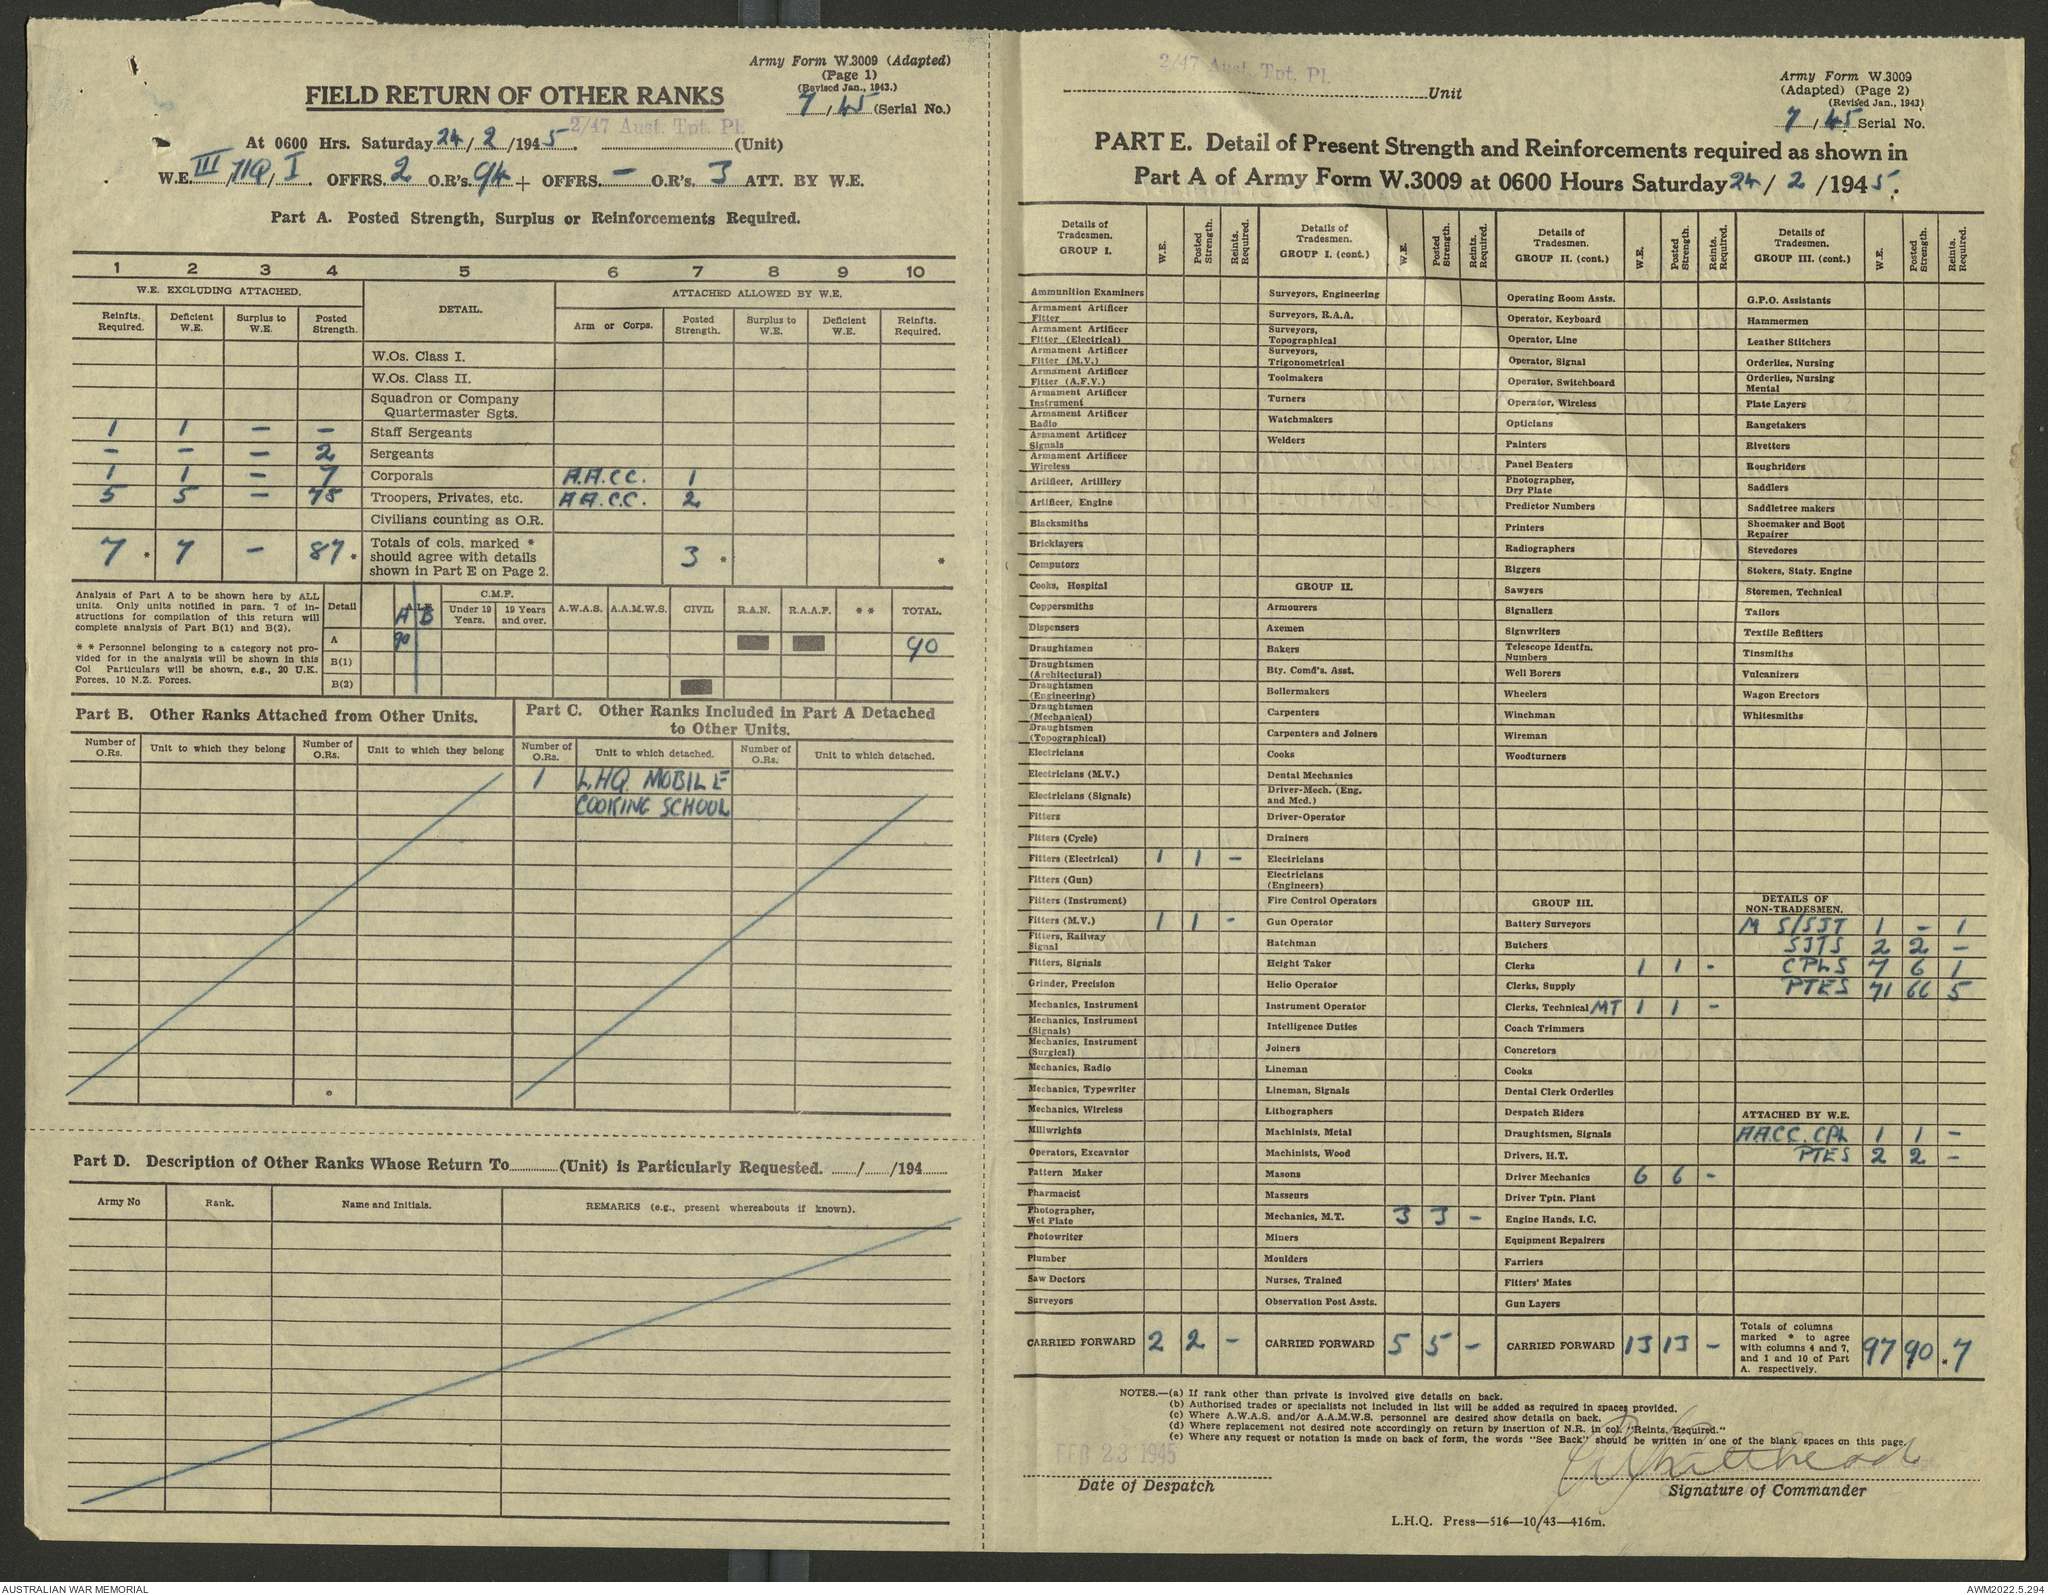 Army Form W.3009 (Adapted)
(Page 1)
(Revised Jan., 1943.)
7/45 (Serial No.)
FIELD RETURN OF OTHER RANKS
2/47 Aust. Tpt. Pl.
At 0600 Hrs. Saturday 24/2/1945. (Unit)
W.E. III/71Q/I. OFFRS. 2 O.R's. 94 + OFFRS. – O.R's. 3 ATT. BY W.E.
Part A. Posted Strength, Surplus or Reinforcements Required.
1 2 3 4 5 6 7 8 9 10
W.E. EXCLUDING ATTACHED. DETAIL. ATTACHED ALLOWED BY W.E.
Reinfts. Required. Deficient W.E. Surplus to W.E. Posted Strength. Arm or Corps. Posted Strength. Surplus to W.E. Deficient W.E. Reinfts. Required.
W.Os. Class I.
W.Os. Class II.
Squadron or Company
Quartermaster Sgts.
1 1 – – Staff Sergeants
– – – 2 Sergeants
1 1 – 7 Corporals A.A.C.C. 1
5 5 – 78 Troopers, Privates, etc. A.A.C.C. 2
Civilians counting as O.R.
7 * 7 – 87 * Totals of cols. marked * should agree with details shown in Part E on Page 2. 3 * *
Analysis of Part A to be shown here by ALL
units. Only units notified in para. 7 of in-
structions for compilation of this return will
complete analysis of Part B(1) and B(2).
* * Personnel belonging to a category not pro-
vided for in the analysis will be shown in this
Col Particulars will be shown, e.g., 20 U.K.
Forces, 10 N.Z. Forces.
Detail A.I.F. A B C.M.F. Under 19 Years. 19 Years and over. A.W.A.S. A.A.M.W.S. CIVIL R.A.N. R.A.A.F. * * TOTAL.
A 90 90
B(1)
B(2)
Part B. Other Ranks Attached from Other Units.
Number of O.Rs. Unit to which they belong Number of O.Rs. Unit to which they belong
Part C. Other Ranks Included in Part A Detached
to Other Units.
Number of O.Rs. Unit to which detached. Number of O.Rs. Unit to which detached.
1 L.H.Q. MOBILE
COOKING SCHOOL
Part D. Description of Other Ranks Whose Return To (Unit) is Particularly Requested. / /194
Army No Rank. Name and Initials. REMARKS (e.g., present whereabouts if known).
2/47 Aust. Tpt. Pl.
Unit
Army Form W.3009
(Adapted) (Page 2)
(Revised Jan., 1943)
7/45 Serial No.
PART E. Detail of Present Strength and Reinforcements required as shown in
Part A of Army Form W.3009 at 0600 Hours Saturday 24/2/1945.
Details of Tradesmen. GROUP I. W.E. Posted Strength. Reints. Required.
Ammunition Examiners
Armament Artificer Fitter
Armament Artificer Fitter (Electrical)
Armament Artificer Fitter (M.V.)
Armament Artificer Fitter (A.F.V.)
Armament Artificer Instrument
Armament Artificer Radio
Armament Artificer Signals
Armament Artificer Wireless
Artificer, Artillery
Artificer, Engine
Blacksmiths
Bricklayers
Computors
Cooks, Hospital
Coppersmiths
Dispensers
Draughtsmen
Draughtsmen (Architectural)
Draughtsmen (Engineering)
Draughtsmen (Mechanical)
Draughtsmen (Topographical)
Electricians
Electricians (M.V.)
Electricians (Signals)
Fitters
Fitters (Cycle)
Fitters (Electrical) 1 1 –
Fitters (Gun)
Fitters (Instrument)
Fitters (M.V.) 1 1 –
Fitters, Railway Signal
Fitters, Signals
Grinder, Precision
Mechanics, Instrument
Mechanics, Instrument (Signals)
Mechanics, Instrument (Surgical)
Mechanics, Radio
Mechanics, Typewriter
Mechanics, Wireless
Millwrights
Operators, Excavator
Pattern Maker
Pharmacist
Photographer, Wet Plate
Photowriter
Plumber
Saw Doctors
Surveyors
CARRIED FORWARD 2 2 –
Details of Tradesmen. GROUP I. (cont.) W.E. Posted Strength. Reints. Required.
Surveyors, Engineering
Surveyors, R.A.A.
Surveyors, Topographical
Surveyors, Trigonometrical
Toolmakers
Turners
Watchmakers
Welders
GROUP II.
Armourers
Axemen
Bakers
Bty. Comd's. Asst.
Boilermakers
Carpenters
Carpenters and Joiners
Cooks
Dental Mechanics
Driver-Mech. (Eng. and Med.)
Driver-Operator
Drainers
Electricians
Electricians (Engineers)
Fire Control Operators
Gun Operator
Hatchman
Height Taker
Helio Operator
Instrument Operator
Intelligence Duties
Joiners
Lineman
Lineman, Signals
Lithographers
Machinists, Metal
Machinists, Wood
Masons
Masseurs
Mechanics, M.T. 3 3 –
Miners
Moulders
Nurses, Trained
Observation Post Assts.
CARRIED FORWARD 5 5 –
Details of Tradesmen. GROUP II. (cont.) W.E. Posted Strength. Reints. Required.
Operating Room Assts.
Operator, Keyboard
Operator, Line
Operator, Signal
Operator, Switchboard
Operator, Wireless
Opticians
Painters
Panel Beaters
Photographer, Dry Plate
Predictor Numbers
Printers
Radiographers
Riggers
Sawyers
Signallers
Signwriters
Telescope Identfn. Numbers
Well Borers
Wheelers
Winchman
Wireman
Woodturners
GROUP III.
Battery Surveyors
Butchers
Clerks 1 1 –
Clerks, Supply
Clerks, Technical MT 1 1 –
Coach Trimmers
Concretors
Cooks
Dental Clerk Orderlies
Despatch Riders
Draughtsmen, Signals
Drivers, H.T.
Driver Mechanics 6 6 –
Driver Tptn. Plant
Engine Hands, I.C.
Equipment Repairers
Farriers
Fitters' Mates
Gun Layers
CARRIED FORWARD 13 13 –
Details of Tradesmen. GROUP III. (cont.) W.E. Posted Strength. Reints. Required.
G.P.O. Assistants
Hammermen
Leather Stitchers
Orderlies, Nursing
Orderlies, Nursing Mental
Plate Layers
Rangetakers
Rivetters
Roughriders
Saddlers
Saddletree makers
Shoemaker and Boot Repairer
Stevedores
Stokers, Staty. Engine
Storemen, Technical
Tailors
Textile Refitters
Tinsmiths
Vulcanizers
Wagon Erectors
Whitesmiths
DETAILS OF NON-TRADESMEN.
M S/SJT 1 – 1
SJTS 2 2 –
CPLS 7 6 1
PTES 71 66 5
ATTACHED BY W.E.
AACC. CPL 1 1 –
PTES 2 2 –
Totals of columns marked * to agree with columns 4 and 7, and 1 and 10 of Part A. respectively. 97 90 . 7
NOTES.—(a) If rank other than private is involved give details on back.
(b) Authorised trades or specialists not included in list will be added as required in spaces provided.
(c) Where A.W.A.S. and/or A.A.M.W.S. personnel are desired show details on back.
(d) Where replacement not desired note accordingly on return by insertion of N.R. in col. "Reints. Required."
(e) Where any request or notation is made on back of form, the words "See Back" should be written in one of the blank spaces on this page.
FEB 23 1945
Date of Despatch
Whitehead
Signature of Commander
L.H.Q. Press—516—10/43—416m.
AUSTRALIAN WAR MEMORIAL
AWM2022.5.294